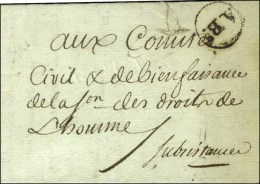 aux Comité
Civil & de bienfaisance
de la s.on des droits de
L'homme
Subsistance